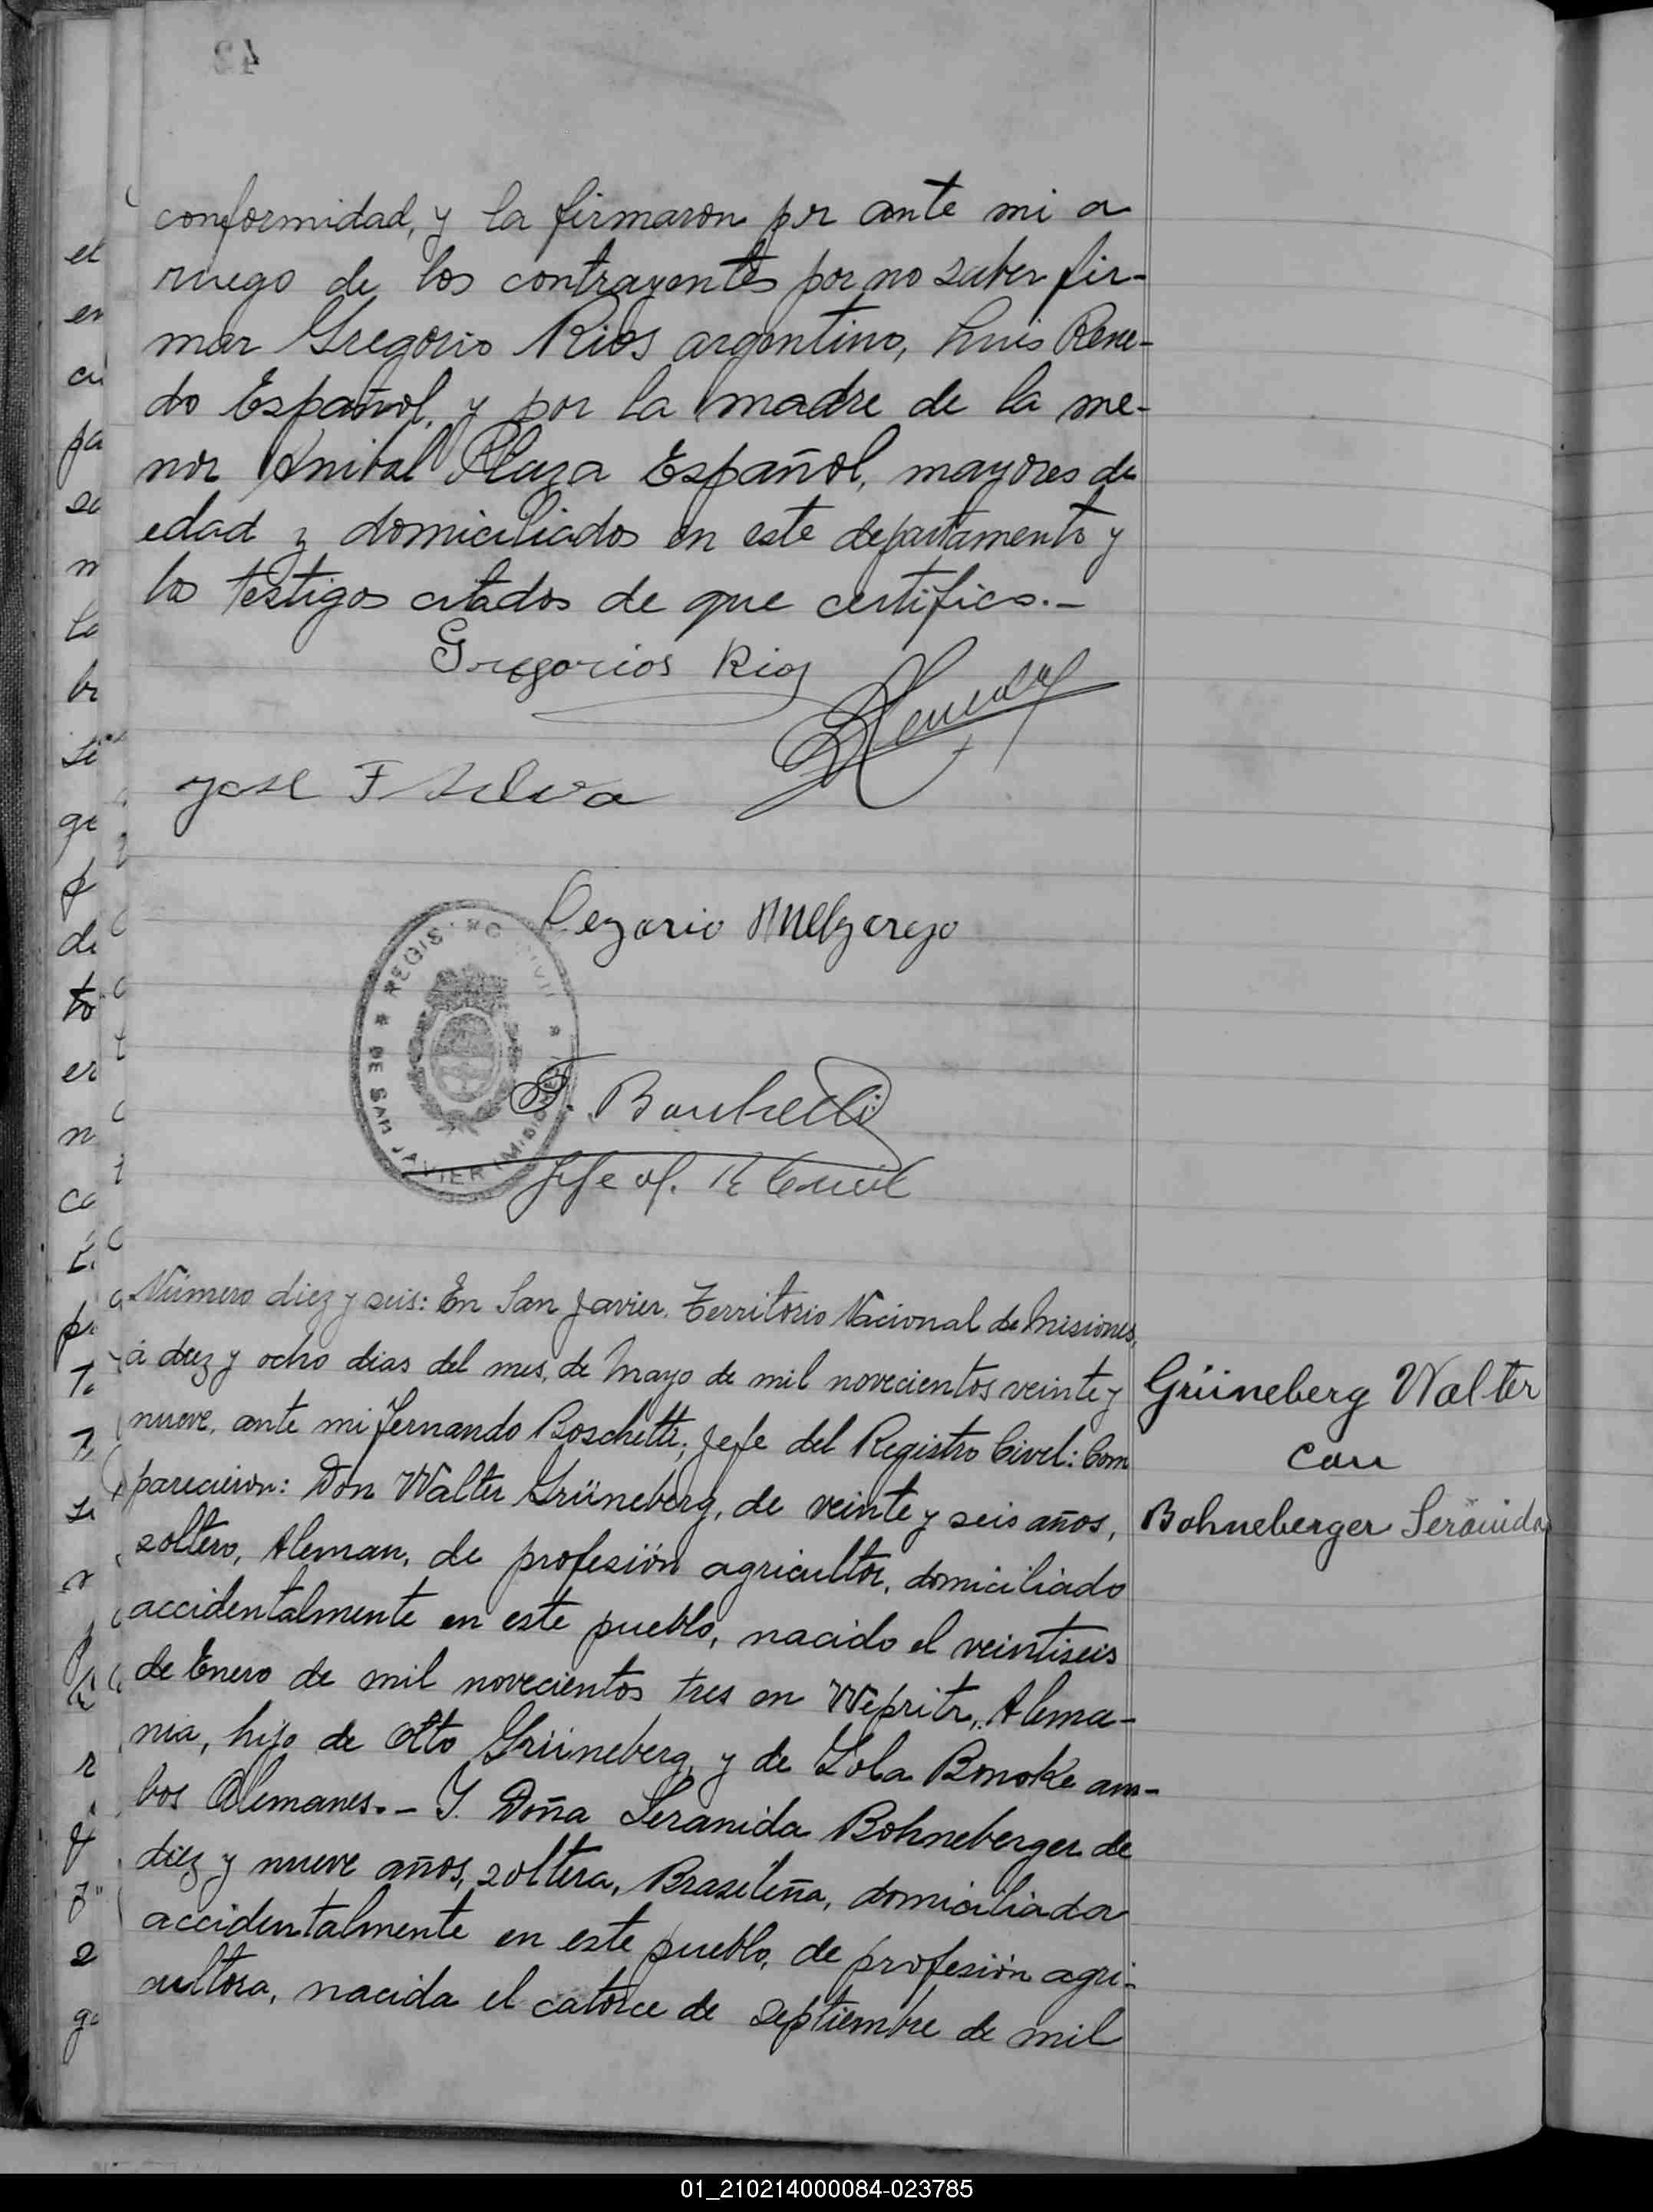 conformidad, y la firmaron por ante mi a
ruego de los contrayentes por no saber fir-
mar Gregorio Rios argentino, Luis Rene-
do Español, y por la madre de la me-
nor Anibal Plaza Español, mayores de
edad y domiciliados en este departamento y
los testigos citados de que certifico.-
Gregorios Rios
Jose F Silva
Cezario Melgarejo
REGISTRO CIVIL
DE SAN JAVIER (MISIONES)
F. Boschetti
Jefe of. R Civil
Número diez y seis: En San Javier, Territorio Nacional de Misiones,
á diez y ocho dias del mes, de Mayo de mil novecientos veinte y
nueve, ante mi Fernando Boschetti, Jefe del Registro Civil: Com
parecieron: Don Walter Grüneberg, de veinte y seis años,
soltero, Aleman, de profesión agricultor, domiciliado
accidentalmente en este pueblo, nacido el veintiseis
de Enero de mil novecientos tres en Wepritz, Alema-
nia, hijo de Otto Grüneberg, y de Lola Bmoke am-
bos Alemanes.- Y. Doña Seranida Bohneberger de
diez y nueve años, soltera, Brasileña, domiciliada
accidentalmente en este pueblo, de profesión agri-
cultora, nacida el catorce de septiembre de mil
Grüneberg Walter
con
Bohneberger Seranida
01_210214000084-023785